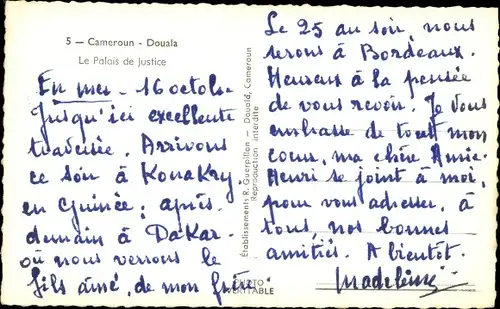 5 — Cameroun - Douala
Le Palais de Justice
En mer - 16 octob.
Jusqu'ici excellente
traversée. Arrivons
ce soir à Konakry,
en Guinée; après
demain à Dakar
où nous verrons le
fils aîné, de mon frère.
Établissements R. Guerpillon - Douala, Cameroun
Reproduction interdite
PHOTO
VÉRITABLE
Le 25 au soir, nous
serons à Bordeaux.
Heureux à la pensée
de vous revoir. Je vous
embrasse de tout mon
cœur, ma chère Amie.
Henri se joint à moi,
pour vous adresser, à
tous, nos bonnes
amitiés. A bientôt.
Madeleine